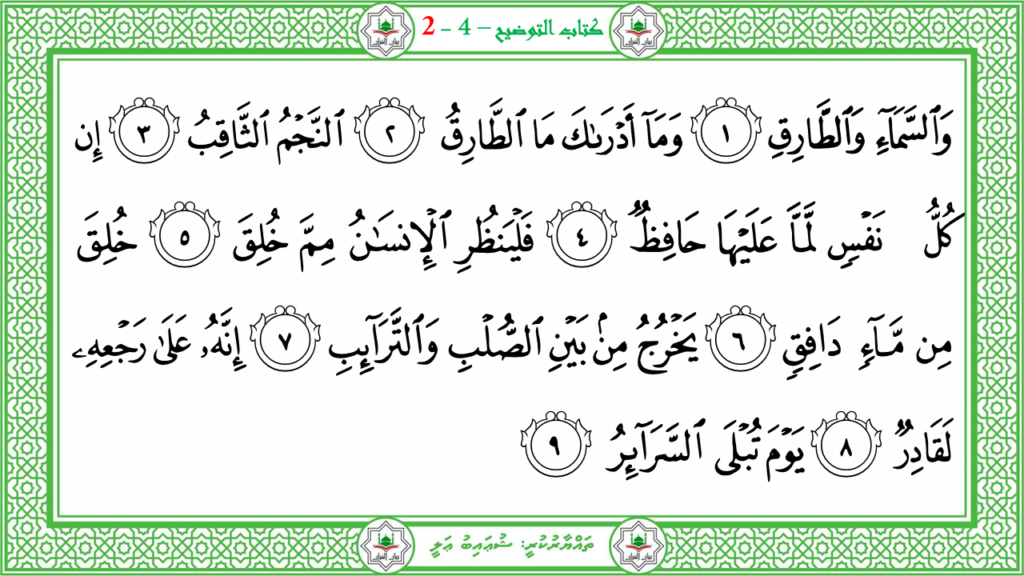 كتاب التوضيح – 4 - 2
وَٱلسَّمَآءِ وَٱلطَّارِقِ ١ وَمَآ أَدۡرَىٰكَ مَا ٱلطَّارِقُ ٢ ٱلنَّجۡمُ ٱلثَّاقِبُ ٣ إِن
كُلُّ نَفۡسٖ لَّمَّا عَلَيۡهَا حَافِظٞ ٤ فَلۡيَنظُرِ ٱلۡإِنسَٰنُ مِمَّ خُلِقَ ٥ خُلِقَ
مِن مَّآءٖ دَافِقٖ ٦ يَخۡرُجُ مِنۢ بَيۡنِ ٱلصُّلۡبِ وَٱلتَّرَآئِبِ ٧ إِنَّهُۥ عَلَىٰ رَجۡعِهِۦ
لَقَادِرٞ ٨ يَوۡمَ تُبۡلَى ٱلسَّرَآئِرُ ٩
ތައްޔާރުކުރީ: ޝުޢައިބު ޢަލީ